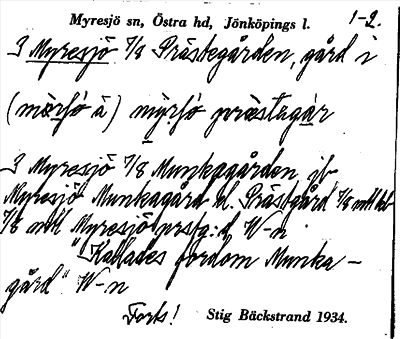 Myresjö sn, Östra hd, Jönköpings l. 1-2.
3 Myresjö 7/8 Prästegården, gård i
(mœrſö à) myrſö præstagàr
3 Myresjö 7/8 Munkagården, jb
Myresjö Munkagård l. Prästgård 7/8 mtl
7/8 mtl Myresjö W-n
"Kallades fordom Munka-
gård". W-n
Forts! Stig Bäckstrand 1934.